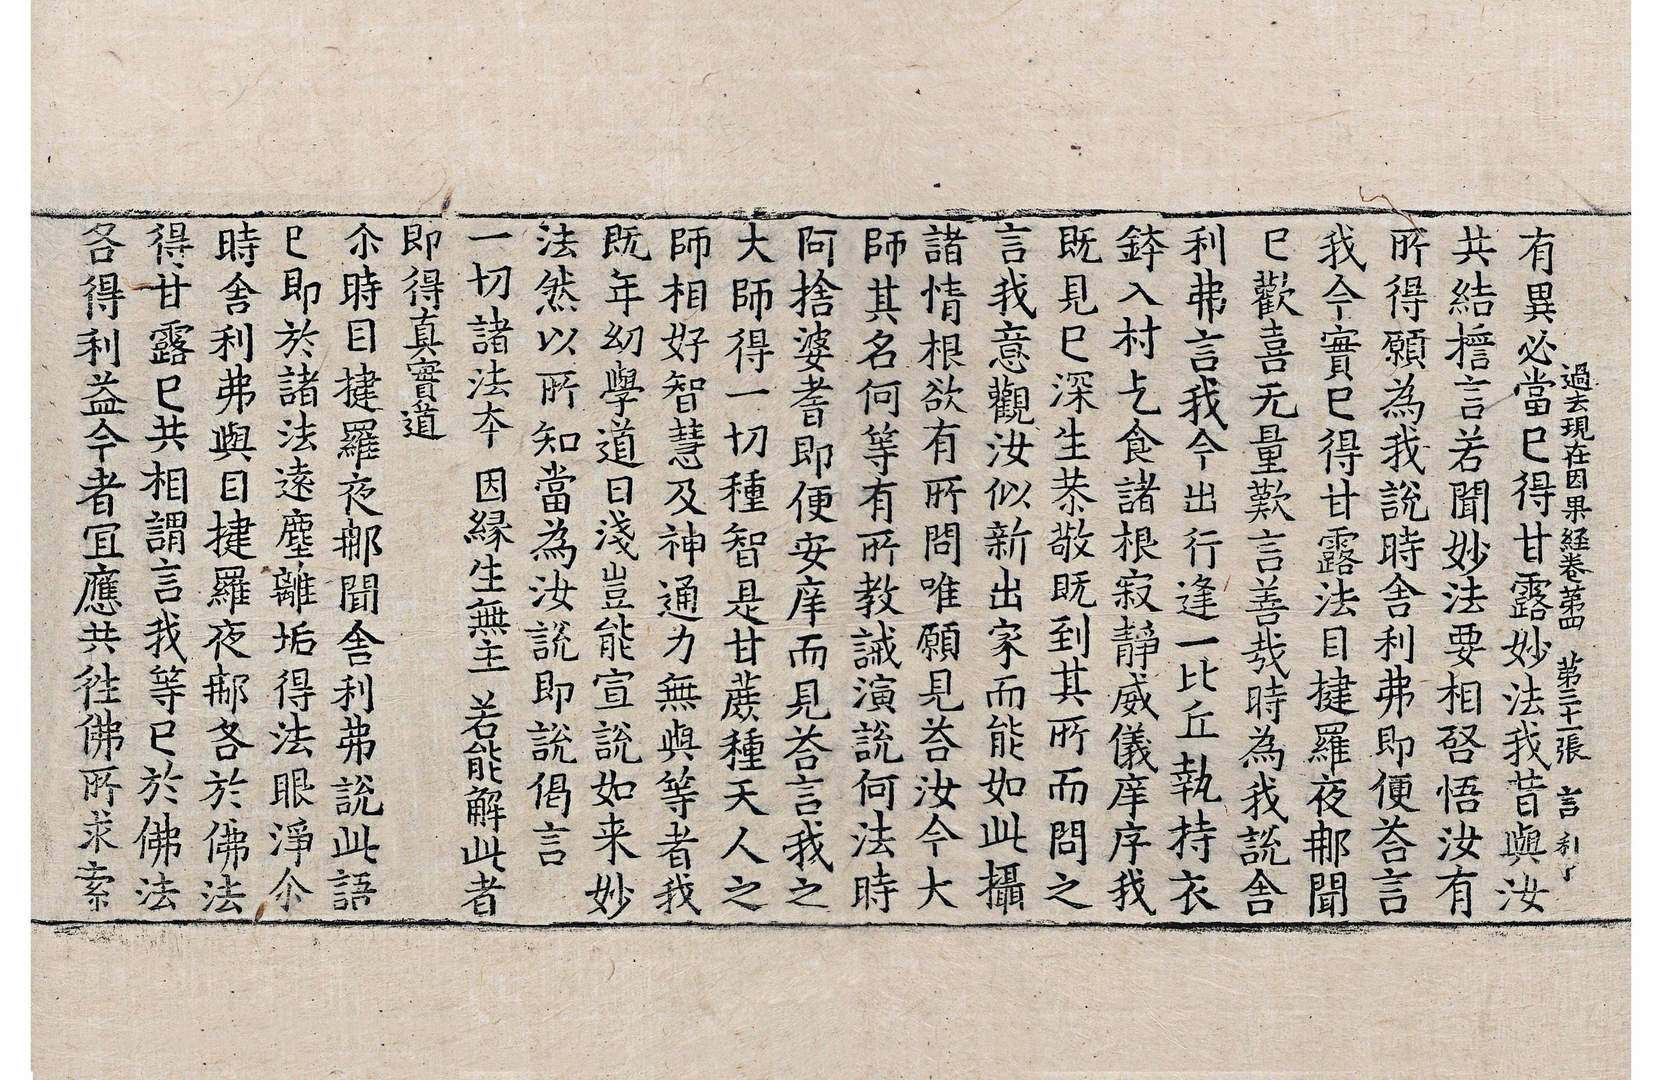 過去現在因果経卷苐四　苐三十一張　言
有異必當巳得甘露妙法我昔與汝
共結擔言若聞妙法要相啓悟汝有
所得願為我說時舍利弗即便荅言
我今實巳得甘露法目揵羅夜郍聞
巳歡喜无量歎言善㢤時為我說舍
利弗言我今出行逢一比丘執持衣
鉢入村乞食諸根寂靜威儀庠序我
既見巳深生恭敬既到其所而問之
言我意觀汝似新出家而能如此攝
諸情根欲有所問唯願見荅汝今大
師其名何等有所教誡演說何法時
阿捨婆耆即便安庠而見荅言我之
大師得一切種智是甘蔗種天人之
師相好智慧及神通力無與等者我
既年幼學道日淺豈能宣說如来妙
法然以所知當為汝說即說偈言
一切諸法本　因縁生無主　若能解此者
即得真實道
尒時目揵羅夜郍聞舍利弗說此語
巳即於諸法遠塵離垢得法眼淨尒
時舍利弗與目揵羅夜郍各於佛法
得甘露巳共相謂言我等巳於佛法
各得利益今者宜應共徃佛所求索